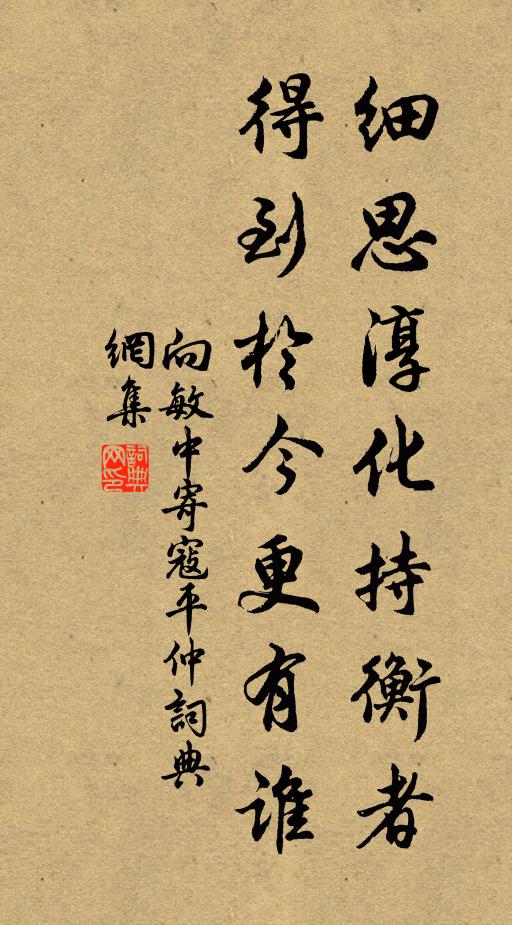 细思淳化持衡者
得到於今更有谁
向敏中寄寇平仲詞典
網集
詞典網印